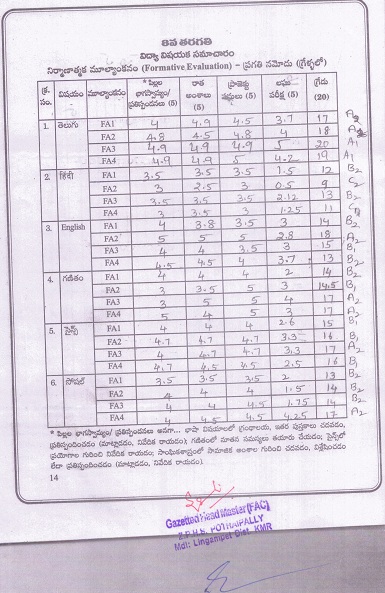 8వ తరగతి
విద్యా విషయక సమాచారం
నిర్మాణాత్మక మూల్యాంకనం (Formative Evaluation) – ప్రగతి నమోదు (గ్రేళ్ళలో)
క్ర. సం. విషయం మూల్యాంకనం * పిల్లల భాగస్వామ్యం/ ప్రతిస్పందనలు (5) రాత అంశాలు (5) ప్రాజెక్టు పనులు (5) లఘు పరీక్ష (5) గ్రేడు (20)
1. తెలుగు FA1 4 4.9 4.5 3.7 17 A2
FA2 4.8 4.5 4.8 4 18
FA3 4.9 4.9 4.9 5 20 A1
FA4 4.9 4.9 5 4.2 19 A1
2. हिंदी FA1 3.5 3.5 3.5 1.5 12 B2
FA2 3 2.5 3 0.5 9 C2
FA3 3.5 3.5 3.5 2.12 13 B2
FA4 3 3.5 3 1.25 11 C1
3. English FA1 4 3.8 3.5 3 14 B2
FA2 5 5 5 2.8 18 A2
FA3 4 4 3.5 3 15 B1
FA4 4.5 4.5 4 3.7 13 B2
4. గణితం FA1 4 4 4 2 14 B2
FA2 3 3.5 5 3 14.5 B1
FA3 3 5 5 4 17 A2
FA4 5 4 5 3 17 A2
5. సైన్స్ FA1 4 4 4 2.6 15 B1
FA2 4.7 4 4.7 3.3 16 B1
FA3 4 4 4.7 3.3 17 A2
FA4 4.7 4.5 4.5 2.5 16 B1
6. సోషల్ FA1 3.5 3.5 3.5 2 13 B2
FA2 4 4 4 1.5 14 B2
FA3 4 4 4.5 1.75 14 B2
FA4 4 4.5 4.5 4.25 17 A2
* పిల్లల భాగస్వామ్యం/ ప్రతిస్పందనలు అనగా... భాషా విషయాలలో గ్రంథాలయ, ఇతర పుస్తకాలు చదవడం,
ప్రతిస్పందించడం (మాట్లాడడం, నివేదిక రాయడం); గణితంలో నూతన సమస్యలు తయారు చేయడం; సైన్స్‌లో
ప్రయోగాల గురించి నివేదిక రాయడం; సాంఘికశాస్త్రంలో సామాజిక అంశాల గురించి చదవడం, విశ్లేషించడం
లేదా ప్రతిస్పందించడం (మాట్లాడడం, నివేదిక రాయడం).
14
Gazetted Head Master (FAC)
Z.P.H.S. POTHAIPALLY
Mdl: Lingampet Dist. KMR